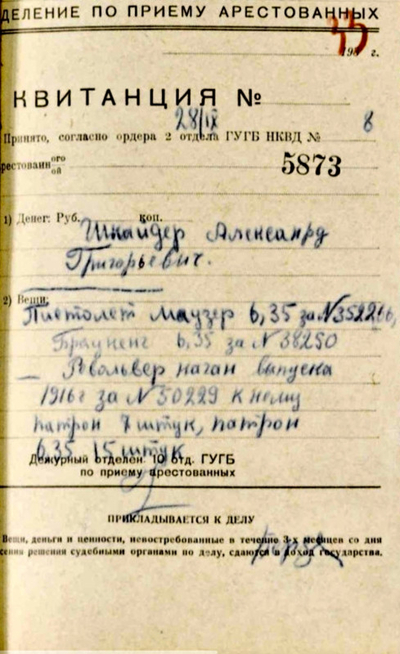 ДЕЛЕНИЕ ПО ПРИЕМУ АРЕСТОВАННЫХ
33
193 г.
КВИТАНЦИЯ №
28/IX 8
Принято, согласно ордера 2 отдела ГУГБ НКВД №
рестованн ого ой 5873
1) Денег: Руб. коп.
Шнайдер Александр
Григорьевич.
2) Вещи:
Пистолет маузер 6,35 за №352266,
Браунинг 6,35 за №38250
Револьвер наган выпуска
1916г за №50229 к нему
патрон 7 штук, патрон
6,35 15 штук
Дежурный отделен. 10 отд. ГУГБ
по приему арестованных
ПРИКЛАДЫВАЕТСЯ К ДЕЛУ
Вещи, деньги и ценности, невостребованные в течение 3-х месяцев со дня
сения решения судебными органами по делу, сдаются в доход государства.